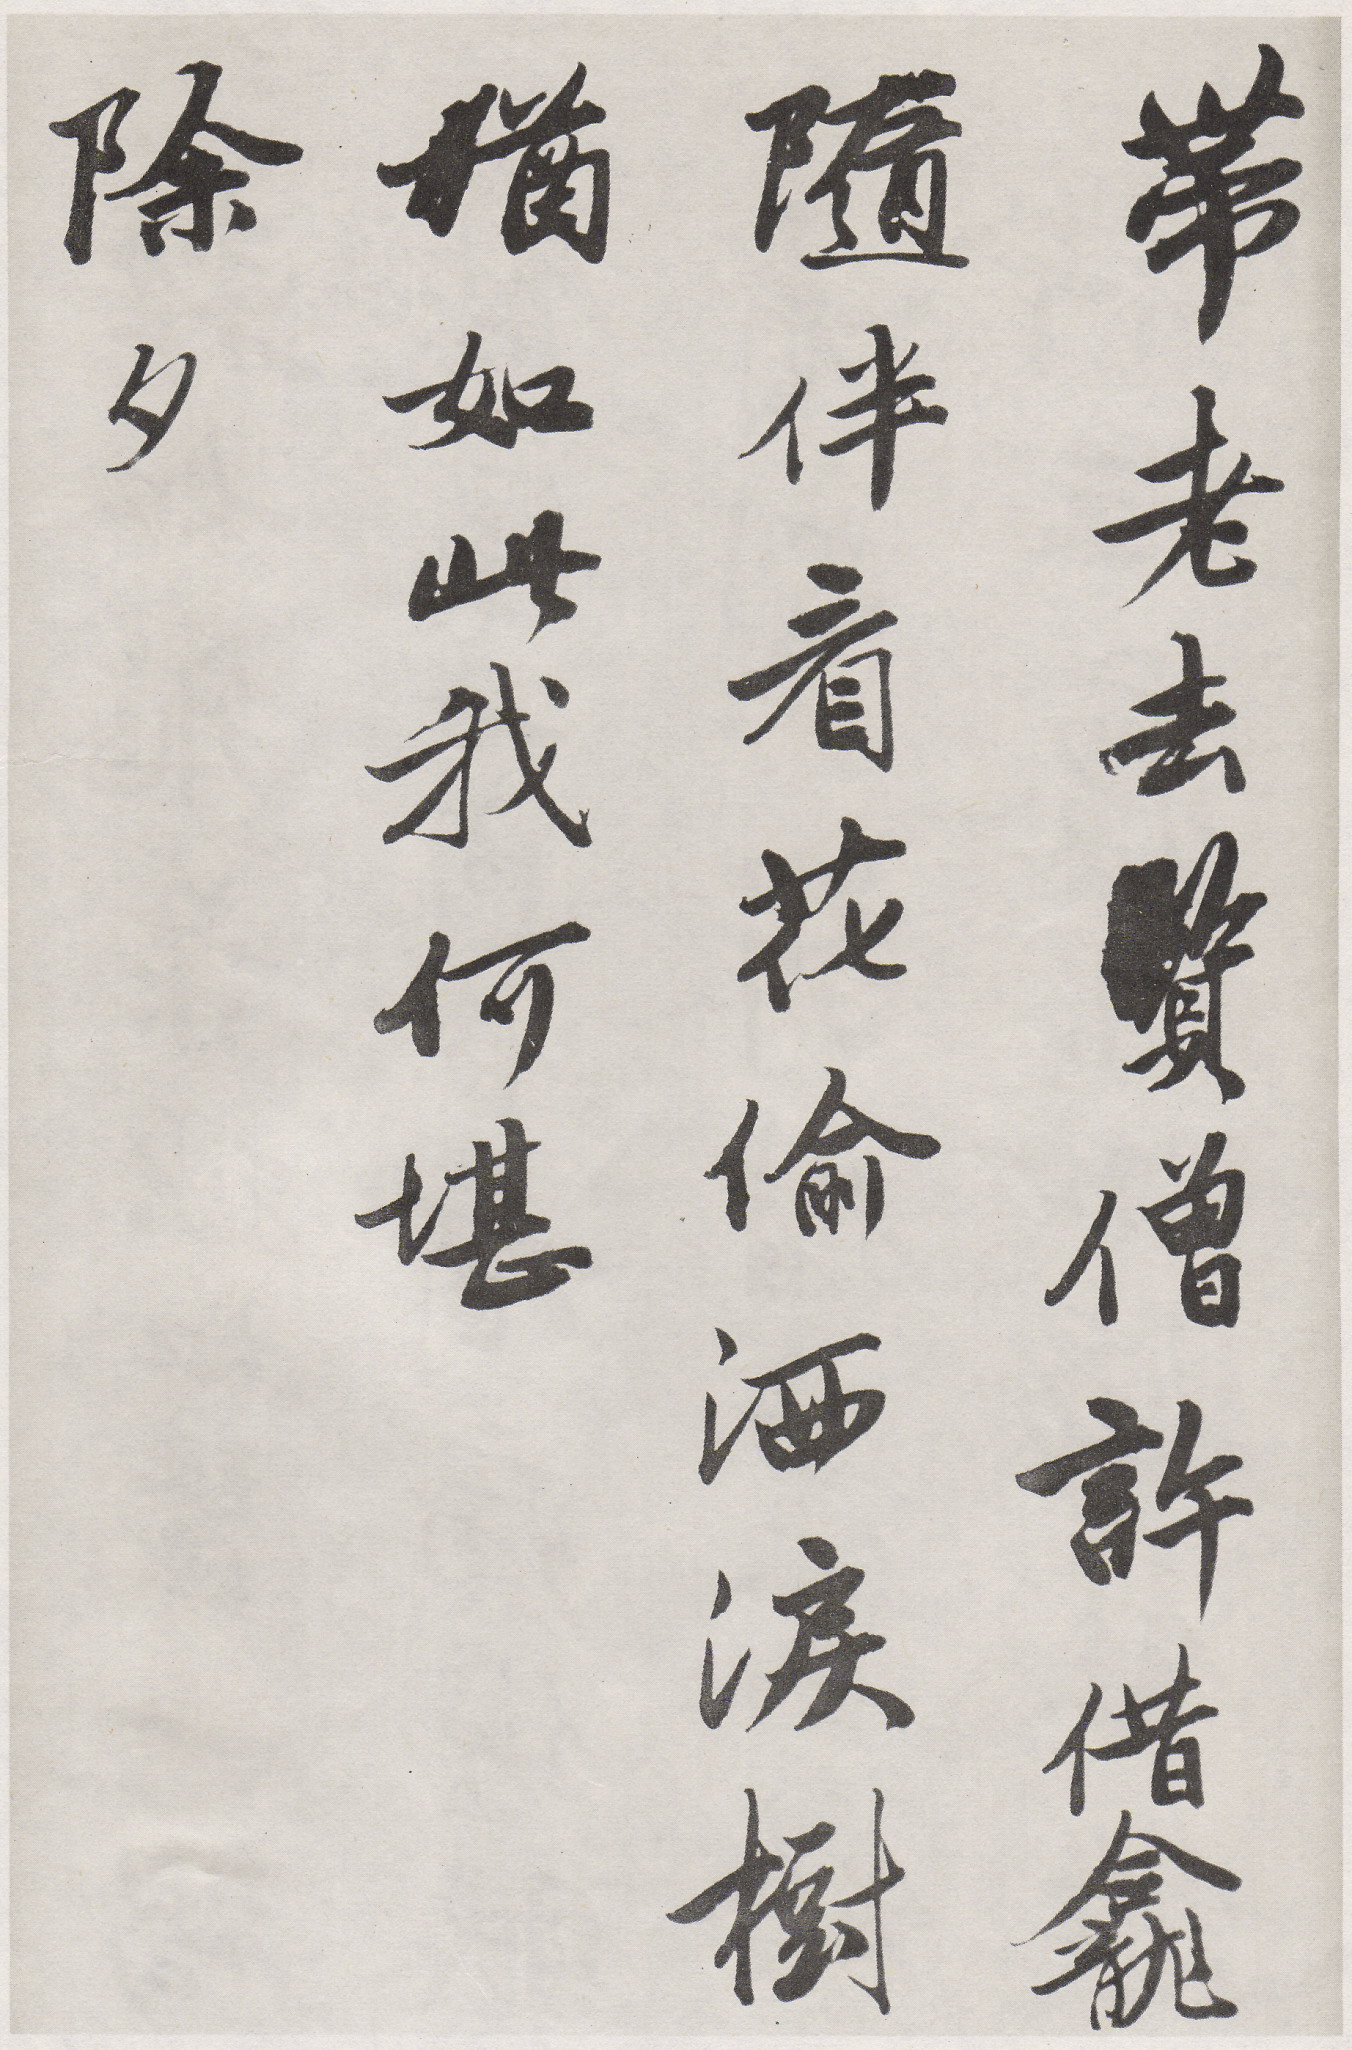 帶老去賢僧許借龕
隨伴看花偷洒淚樹
猶如此我何堪
除夕